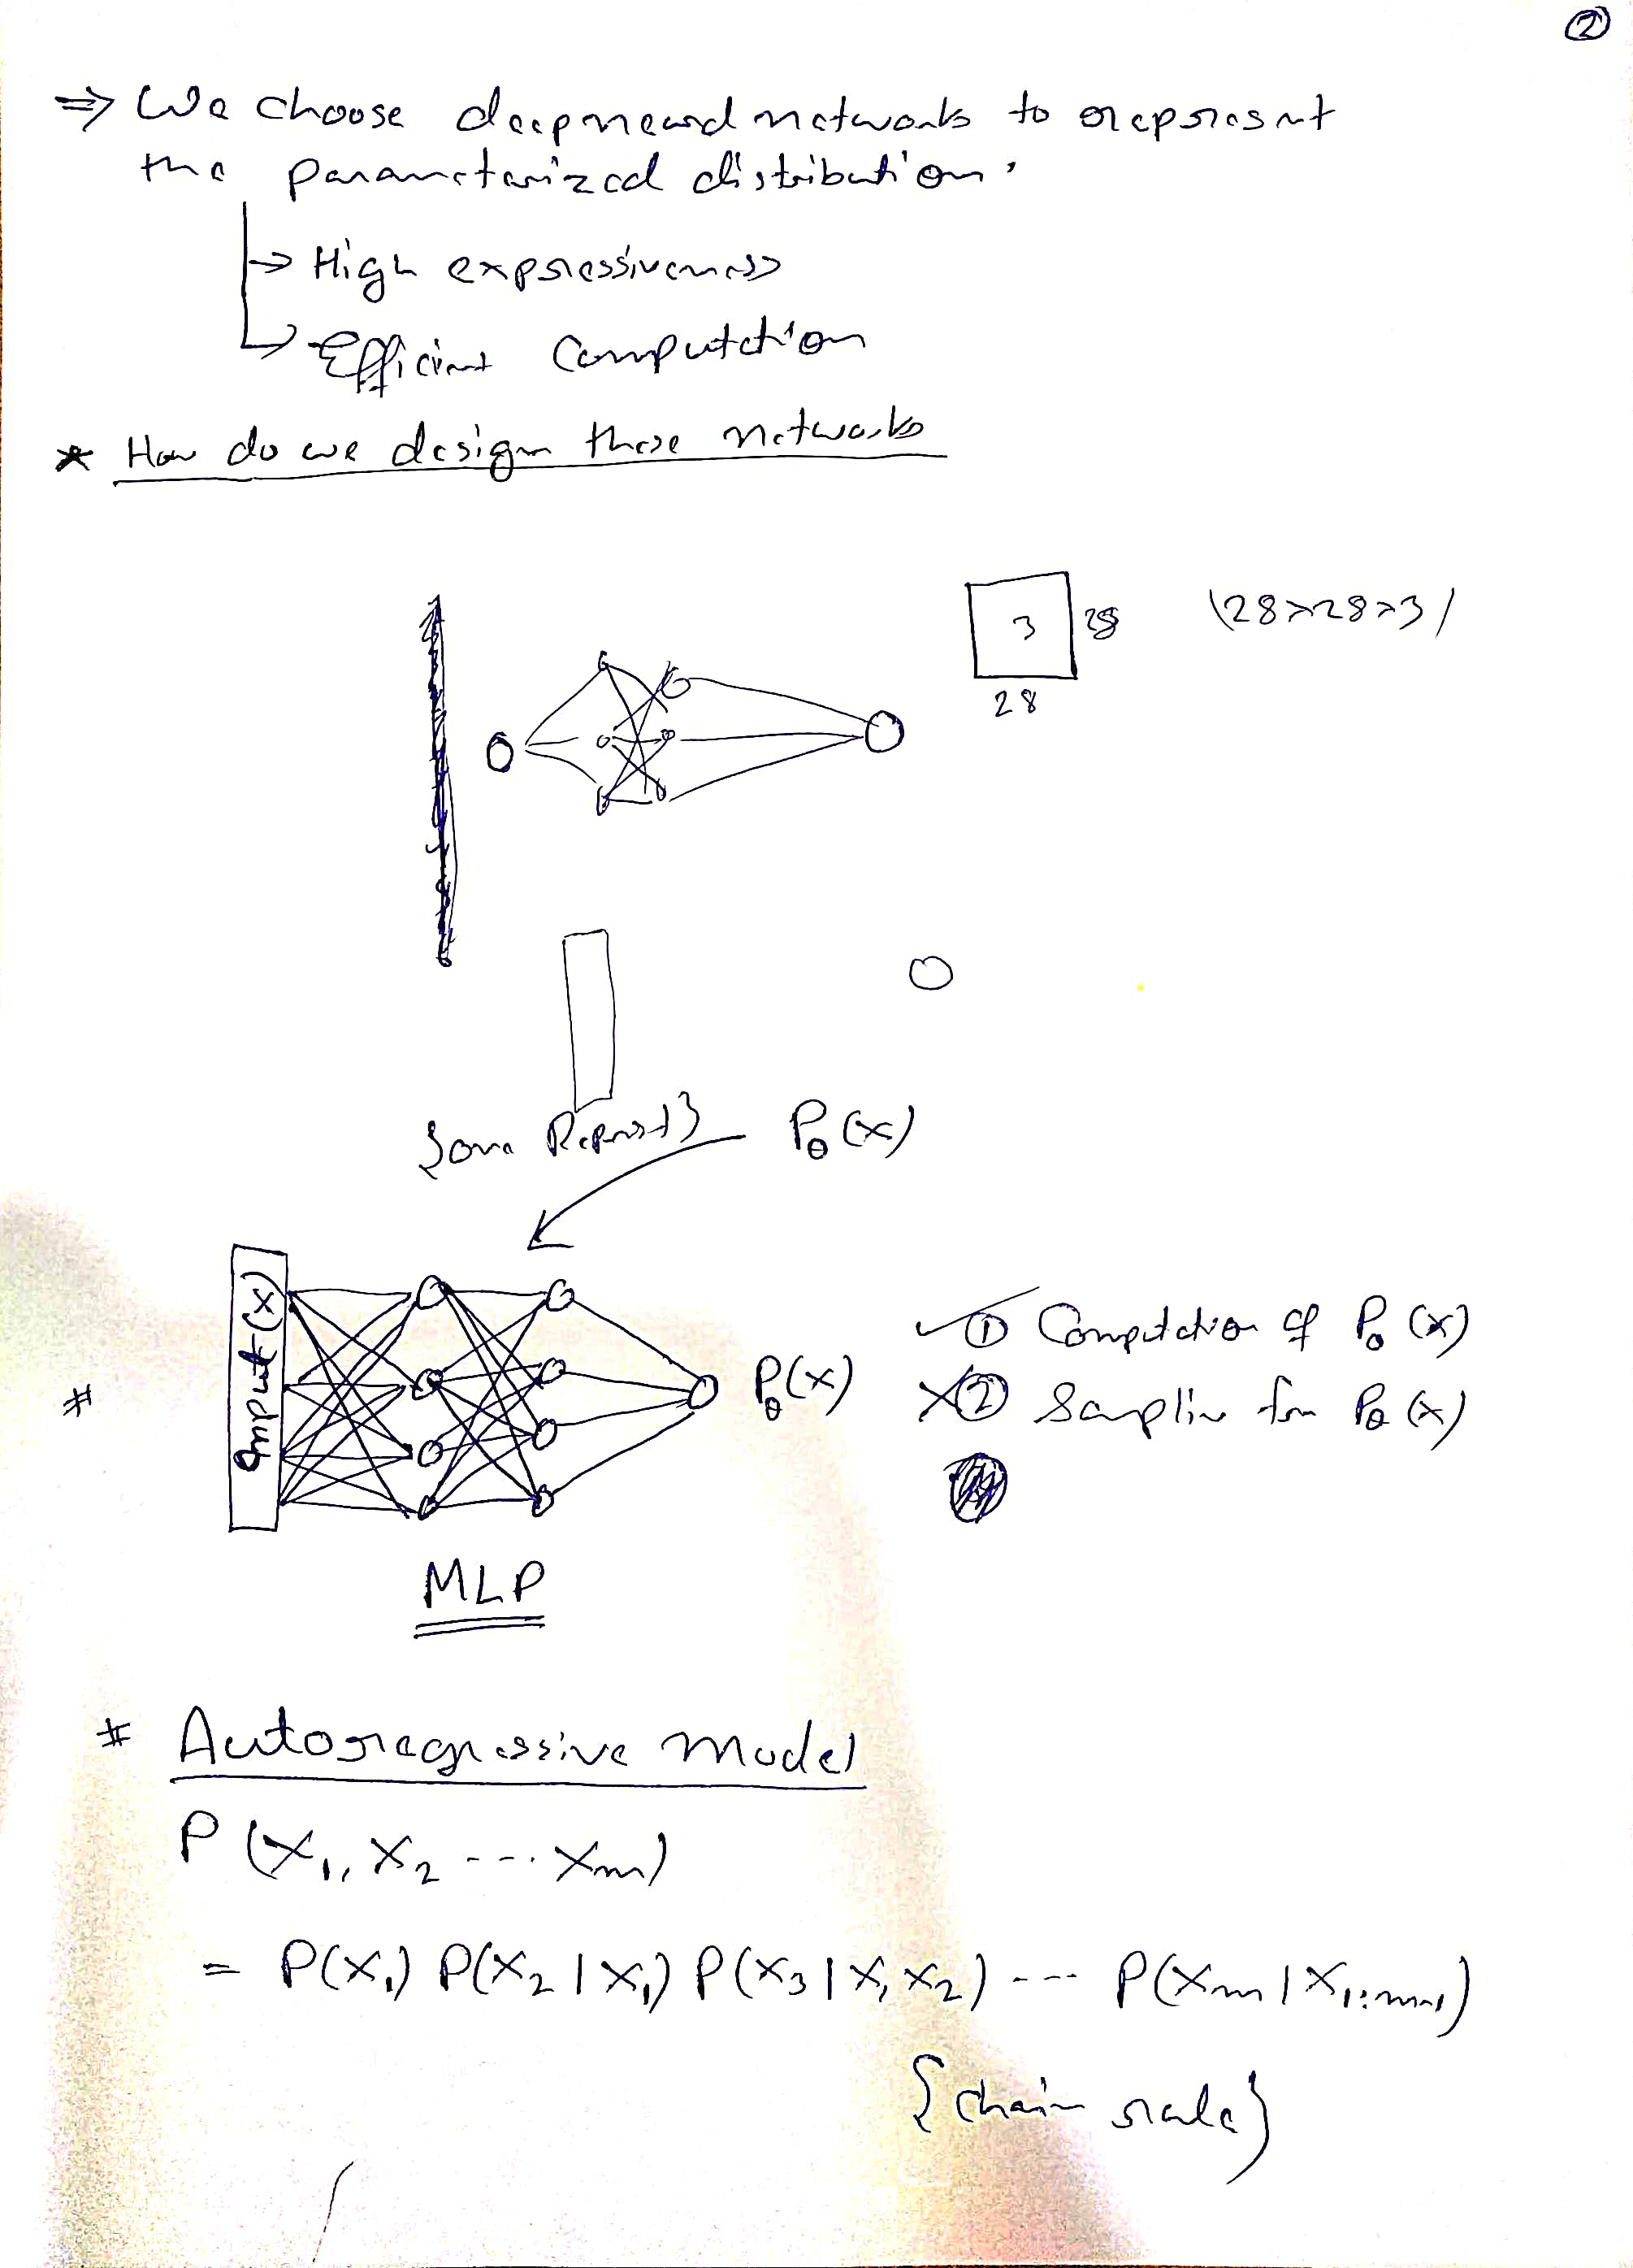 ②
⇒ We choose deep neural networks to represent
the parameterized distribution.
→ High expressiveness
→ Efficient Computation
* How do we design these networks
3 28 (28×28×3)
28
Some P_θ(x)
Input (x)
# P_θ(x)
① Computation of P_θ(x)
×② Sampling from P_θ(x)
MLP
* Autoregressive model
P(X₁, X₂ --- Xₙ)
= P(X₁) P(X₂|X₁) P(X₃|X₁X₂) --- P(Xₙ|X₁:ₙ₋₁)
{chain rule}